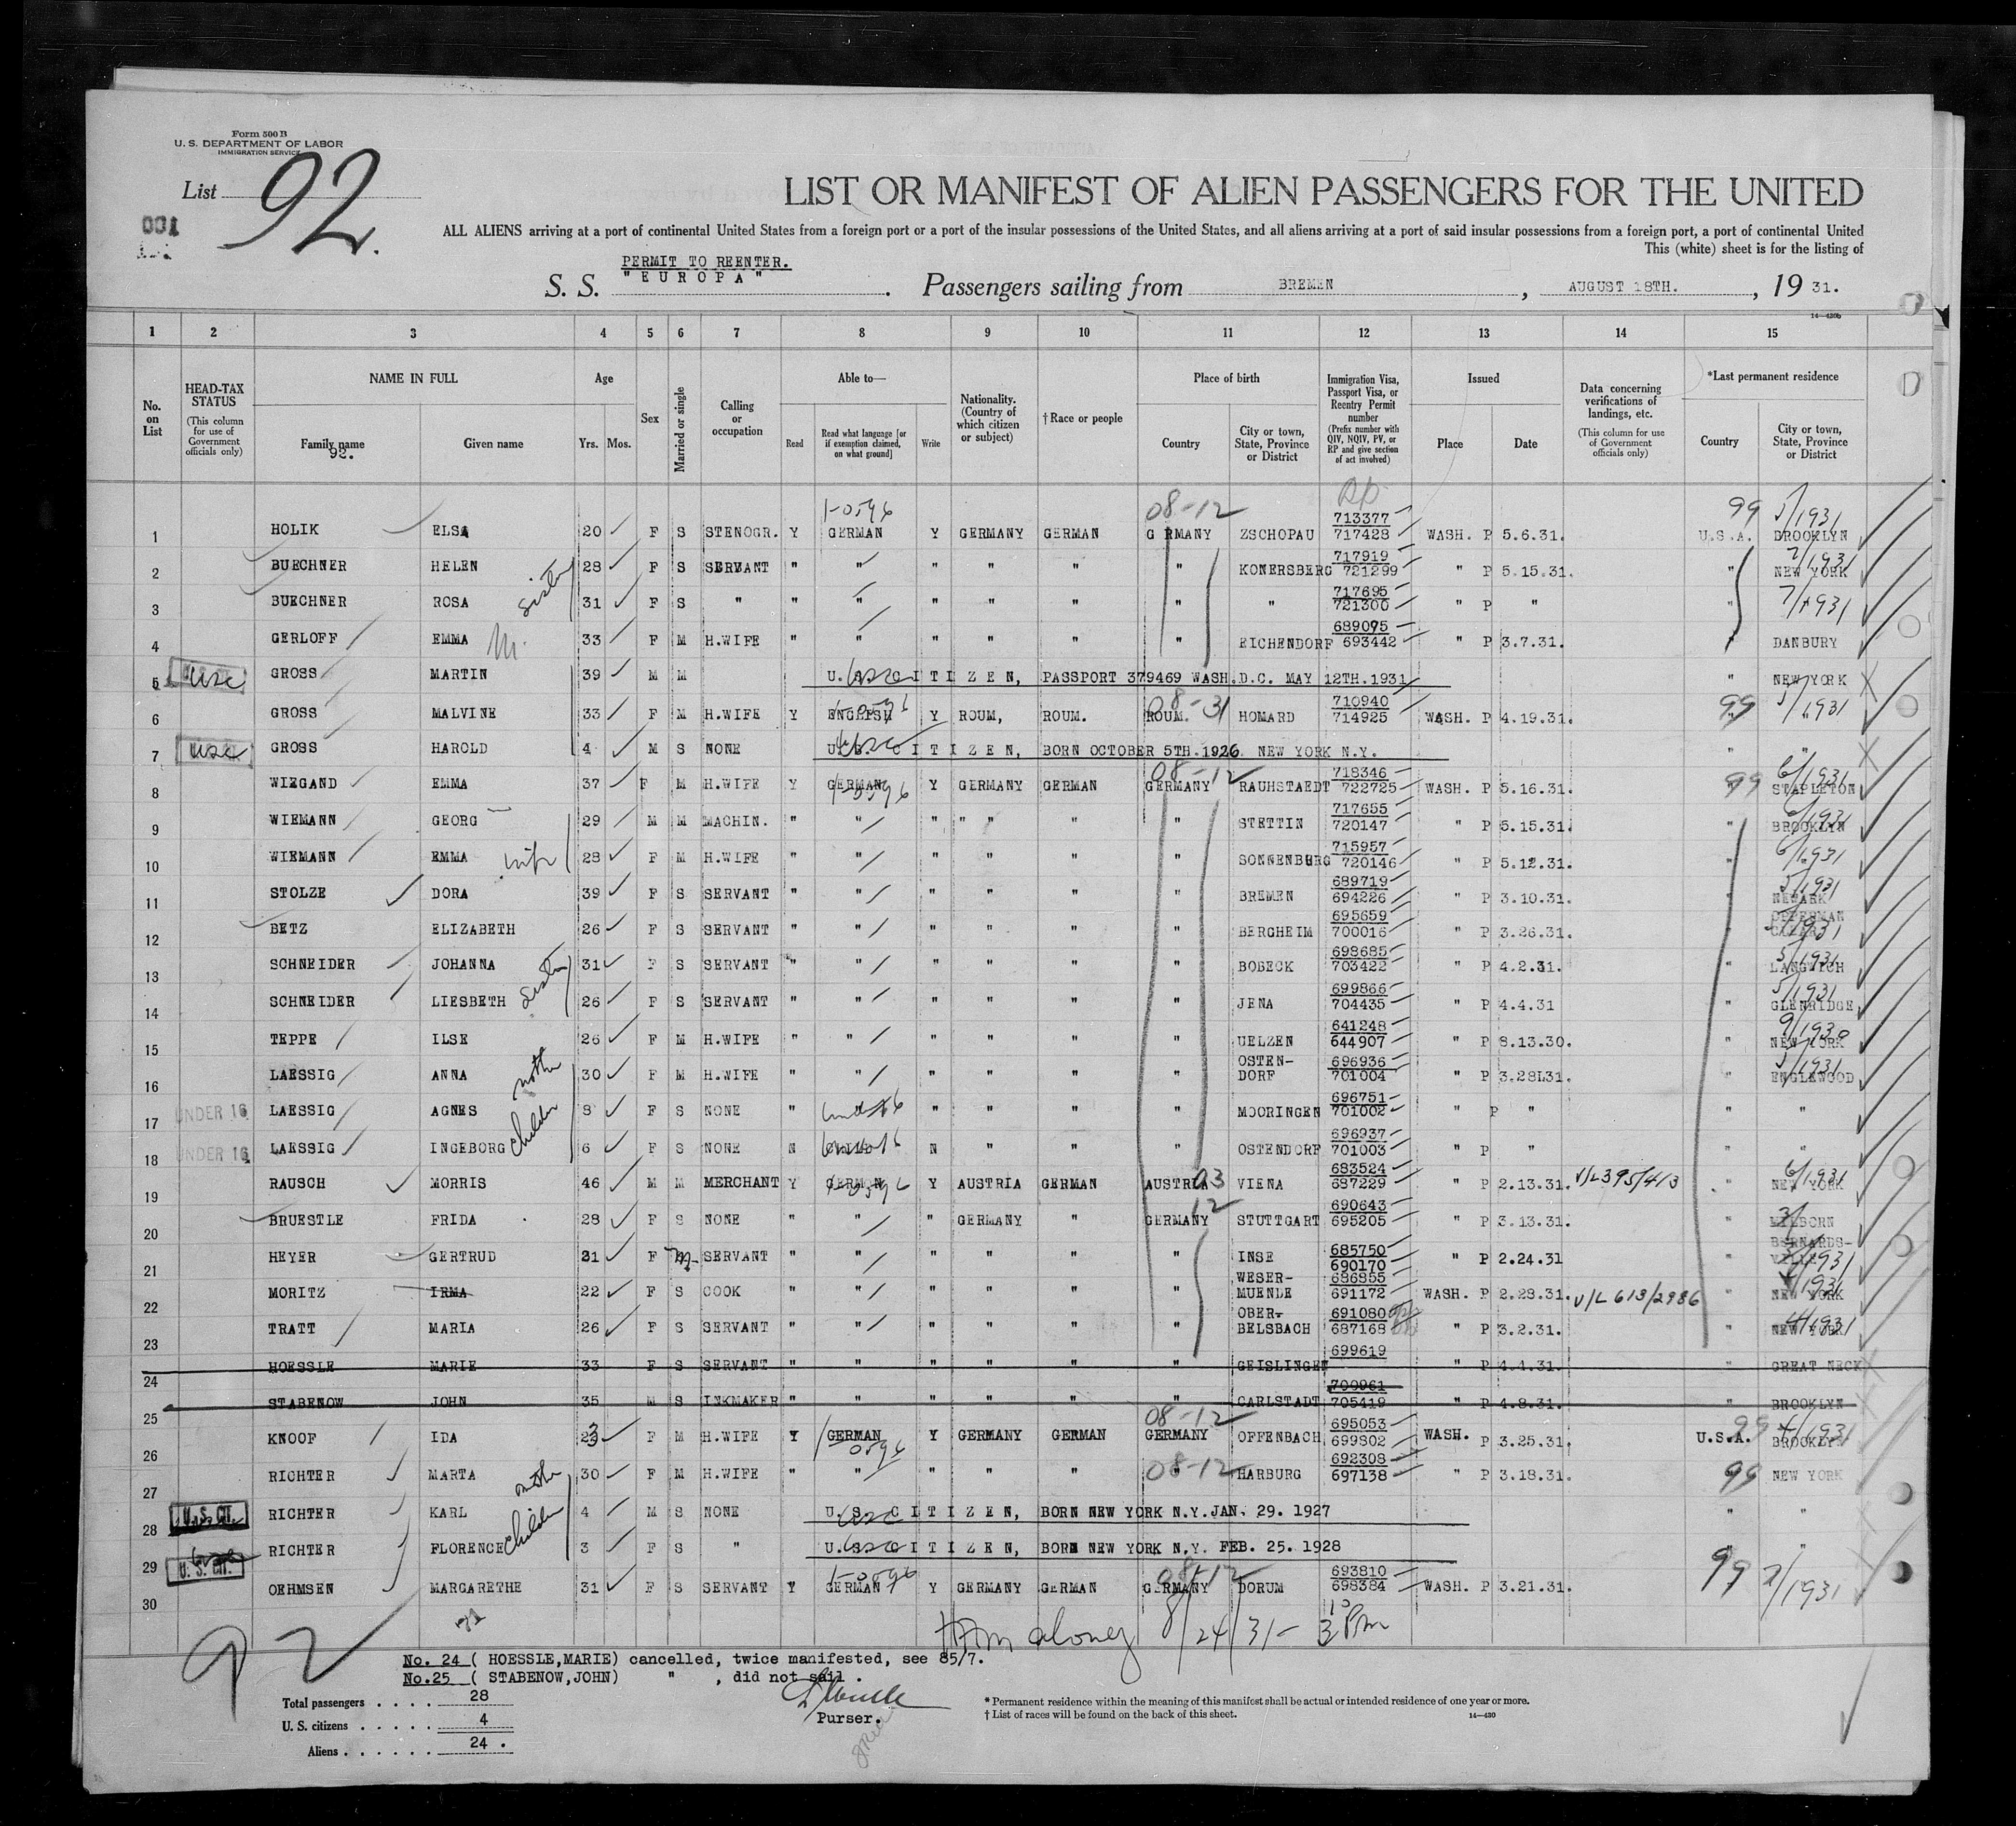 Form 500 B
U. S. DEPARTMENT OF LABOR
IMMIGRATION SERVICE
List 92.
001
LIST OR MANIFEST OF ALIEN PASSENGERS FOR THE UNITED
ALL ALIENS arriving at a port of continental United States from a foreign port or a port of the insular possessions of the United States, and all aliens arriving at a port of said insular possessions from a foreign port, a port of continental United
This (white) sheet is for the listing of
PERMIT TO REENTER.
S. S. "EUROPA". Passengers sailing from BREMEN, AUGUST 18TH., 19 31.
14-430b
1 2 3 4 5 6 7 8 9 10 11 12 13 14 15
No. on List
HEAD-TAX STATUS (This column for use of Government officials only)
NAME IN FULL Family name Given name
92.
Age Yrs. Mos.
Sex
Married or single
Calling or occupation
Able to— Read Read what language [or if exemption claimed, on what ground] Write
Nationality. (Country of which citizen or subject)
†Race or people
Place of birth Country City or town, State, Province or District
Immigration Visa, Passport Visa, or Reentry Permit number (Prefix number with QIV, NQIV, PV, or RP and give section of act involved)
Issued Place Date
Data concerning verifications of landings, etc. (This column for use of Government officials only)
*Last permanent residence Country City or town, State, Province or District
1-0596 08-12 RP 99 5/1931
1 HOLIK ELSA 20 F S STENOGR. Y GERMAN Y GERMANY GERMAN G RMANY ZSCHOPAU 713377 717428 WASH. P 5.6.31. U.S.A. BROOKLYN
2 BUECHNER HELEN 28 F S SERVANT " " " " " " KONERSBERG 717919 721299 " P 5.15.31. " NEW YORK 7/1931
3 BUECHNER ROSA sister 31 F S " " " " " " " " 717695 721300 " P " " 7/1931
4 GERLOFF EMMA M. 33 F M H.WIFE " " " " " " EICHENDORF 689095 693442 " P 3.7.31. " DANBURY
5 USC GROSS MARTIN 39 M M U.S. CITIZEN, PASSPORT 379469 WASH.D.C. MAY 12TH.1931 " NEW YORK
6 GROSS MALVINE 33 F M H.WIFE Y ENGLISH Y ROUM, ROUM. ROUM. 08-31 HOMARD 710940 714925 WASH. P 4.19.31. 99 5/1931
7 USC GROSS HAROLD 4 M S NONE U.S. CITIZEN, BORN OCTOBER 5TH.1926 NEW YORK N.Y. " "
8 WIEGAND EMMA 37 F M H.WIFE Y GERMAN 1-0596 Y GERMANY GERMAN GERMANY 08-12 RAUHSTAEDT 718346 722725 WASH. P 5.16.31. 99 STAPLETON 6/1931
9 WIEMANN GEORG 29 M M MACHIN. " " " " " " " STETTIN 717655 720147 " P 5.15.31. " BROOKLYN 6/1931
10 WIEMANN EMMA wife 28 F M H.WIFE " " " " " " SONNENBURG 715957 720146 " P 5.12.31. " 6/1931
11 STOLZE DORA 39 F S SERVANT " " " " " " BREMEN 689719 694226 " P 3.10.31. " NEWARK 5/1931
12 BETZ ELIZABETH 26 F S SERVANT " " " " " " BERGHEIM 695659 700016 " P 3.26.31. "
13 SCHNEIDER JOHANNA 31 F S SERVANT " " " " " " BOBECK 698685 703422 " P 4.2.31. " 5/1931
14 SCHNEIDER LIESBETH sister 26 F S SERVANT " " " " " " JENA 699866 704435 " P 4.4.31 " GLENRIDGE 5/1931
15 TEPPE ILSE 26 F M H.WIFE " " " " " " UELZEN 641248 644907 " P 8.13.30. " NEW YORK 9/1930
16 LAESSIG ANNA mother 30 F M H.WIFE " " " " " " OSTEN- DORF 696936 701004 " P 3.28L31. " ENGLEWOOD 5/1931
17 UNDER 16 LAESSIG AGNES 8 F S NONE " under 16 " " " " MOORINGEN 696751 701002 " P " " "
18 UNDER 16 LAESSIG INGEBORG children 6 F S NONE N under 16 N " " " OSTENDORF 696937 701003 " P " " "
19 RAUSCH MORRIS 46 M M MERCHANT Y GERMAN 1-0596 Y AUSTRIA GERMAN AUSTRIA 03 VIENA 683524 687229 " P 2.13.31. V/L395/413 " NEW YORK 6/1931
20 BRUESTLE FRIDA 28 F S NONE " " " GERMANY " GERMANY 12 STUTTGART 690643 695205 " P 3.13.31. "
21 HEYER GERTRUD 31 F M- SERVANT " " " " " " INSE 685750 690170 " P 2.24.31 " BERNARDS- VILLE
22 MORITZ IRMA 22 F S COOK " " " " " " WESER- MUENDE 686855 691172 WASH. P 2.28.31. V/L 613/2986 " NEW YORK
23 TRATT MARIA 26 F S SERVANT " " " " " " OBER- BELSBACH 691080 687168 " P 3.2.31. " NEW YORK 4/1931
24 HOESSLE MARIE 33 F S SERVANT " " " " " " GEISLINGEN 699619 " P 4.4.31. " GREAT NECK
25 STABENOW JOHN 35 M S INKMAKER " " " " " " CARLSTADT 700961 705419 " P 4.8.31. " BROOKLYN
26 KNOOF IDA 23 F M H.WIFE Y GERMAN 1-0596 Y GERMANY GERMAN GERMANY 08-12 OFFENBACH 695053 699802 WASH. P 3.25.31. U.S.A. 99 BROOKLYN 4/1931
27 RICHTER MARTA mother 30 F M H.WIFE " " " " " 08-12 HARBURG 692308 697138 " P 3.18.31. 99 NEW YORK
28 U.S.CIT. RICHTER KARL 4 M S NONE U.S. CITIZEN, BORN NEW YORK N.Y.JAN. 29. 1927 " "
29 U.S.CIT. RICHTER FLORENCE children 3 F S " U.S. CITIZEN, BORN NEW YORK N.Y. FEB. 25. 1928 " "
30 OEHMSEN MARGARETHE 31 F S SERVANT Y GERMAN 1-0596 Y GERMANY GERMAN GERMANY 08-12 DORUM 693810 698384 WASH. P 3.21.31. 99 7/1931
8/24/31- 3 Pm
92
No. 24 ( HOESSLE,MARIE) cancelled, twice manifested, see 85/7.
No.25 ( STABENOW,JOHN) " , did not sail .
Total passengers . . . . 28
U. S. citizens . . . . . 4
Aliens . . . . . . 24 .
Purser.
* Permanent residence within the meaning of this manifest shall be actual or intended residence of one year or more.
† List of races will be found on the back of this sheet. 14—430